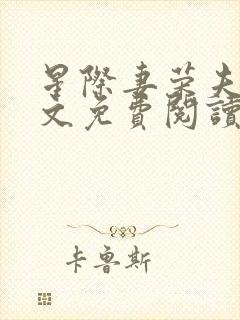 星際妻榮夫
文免費閱讀
卡魯斯